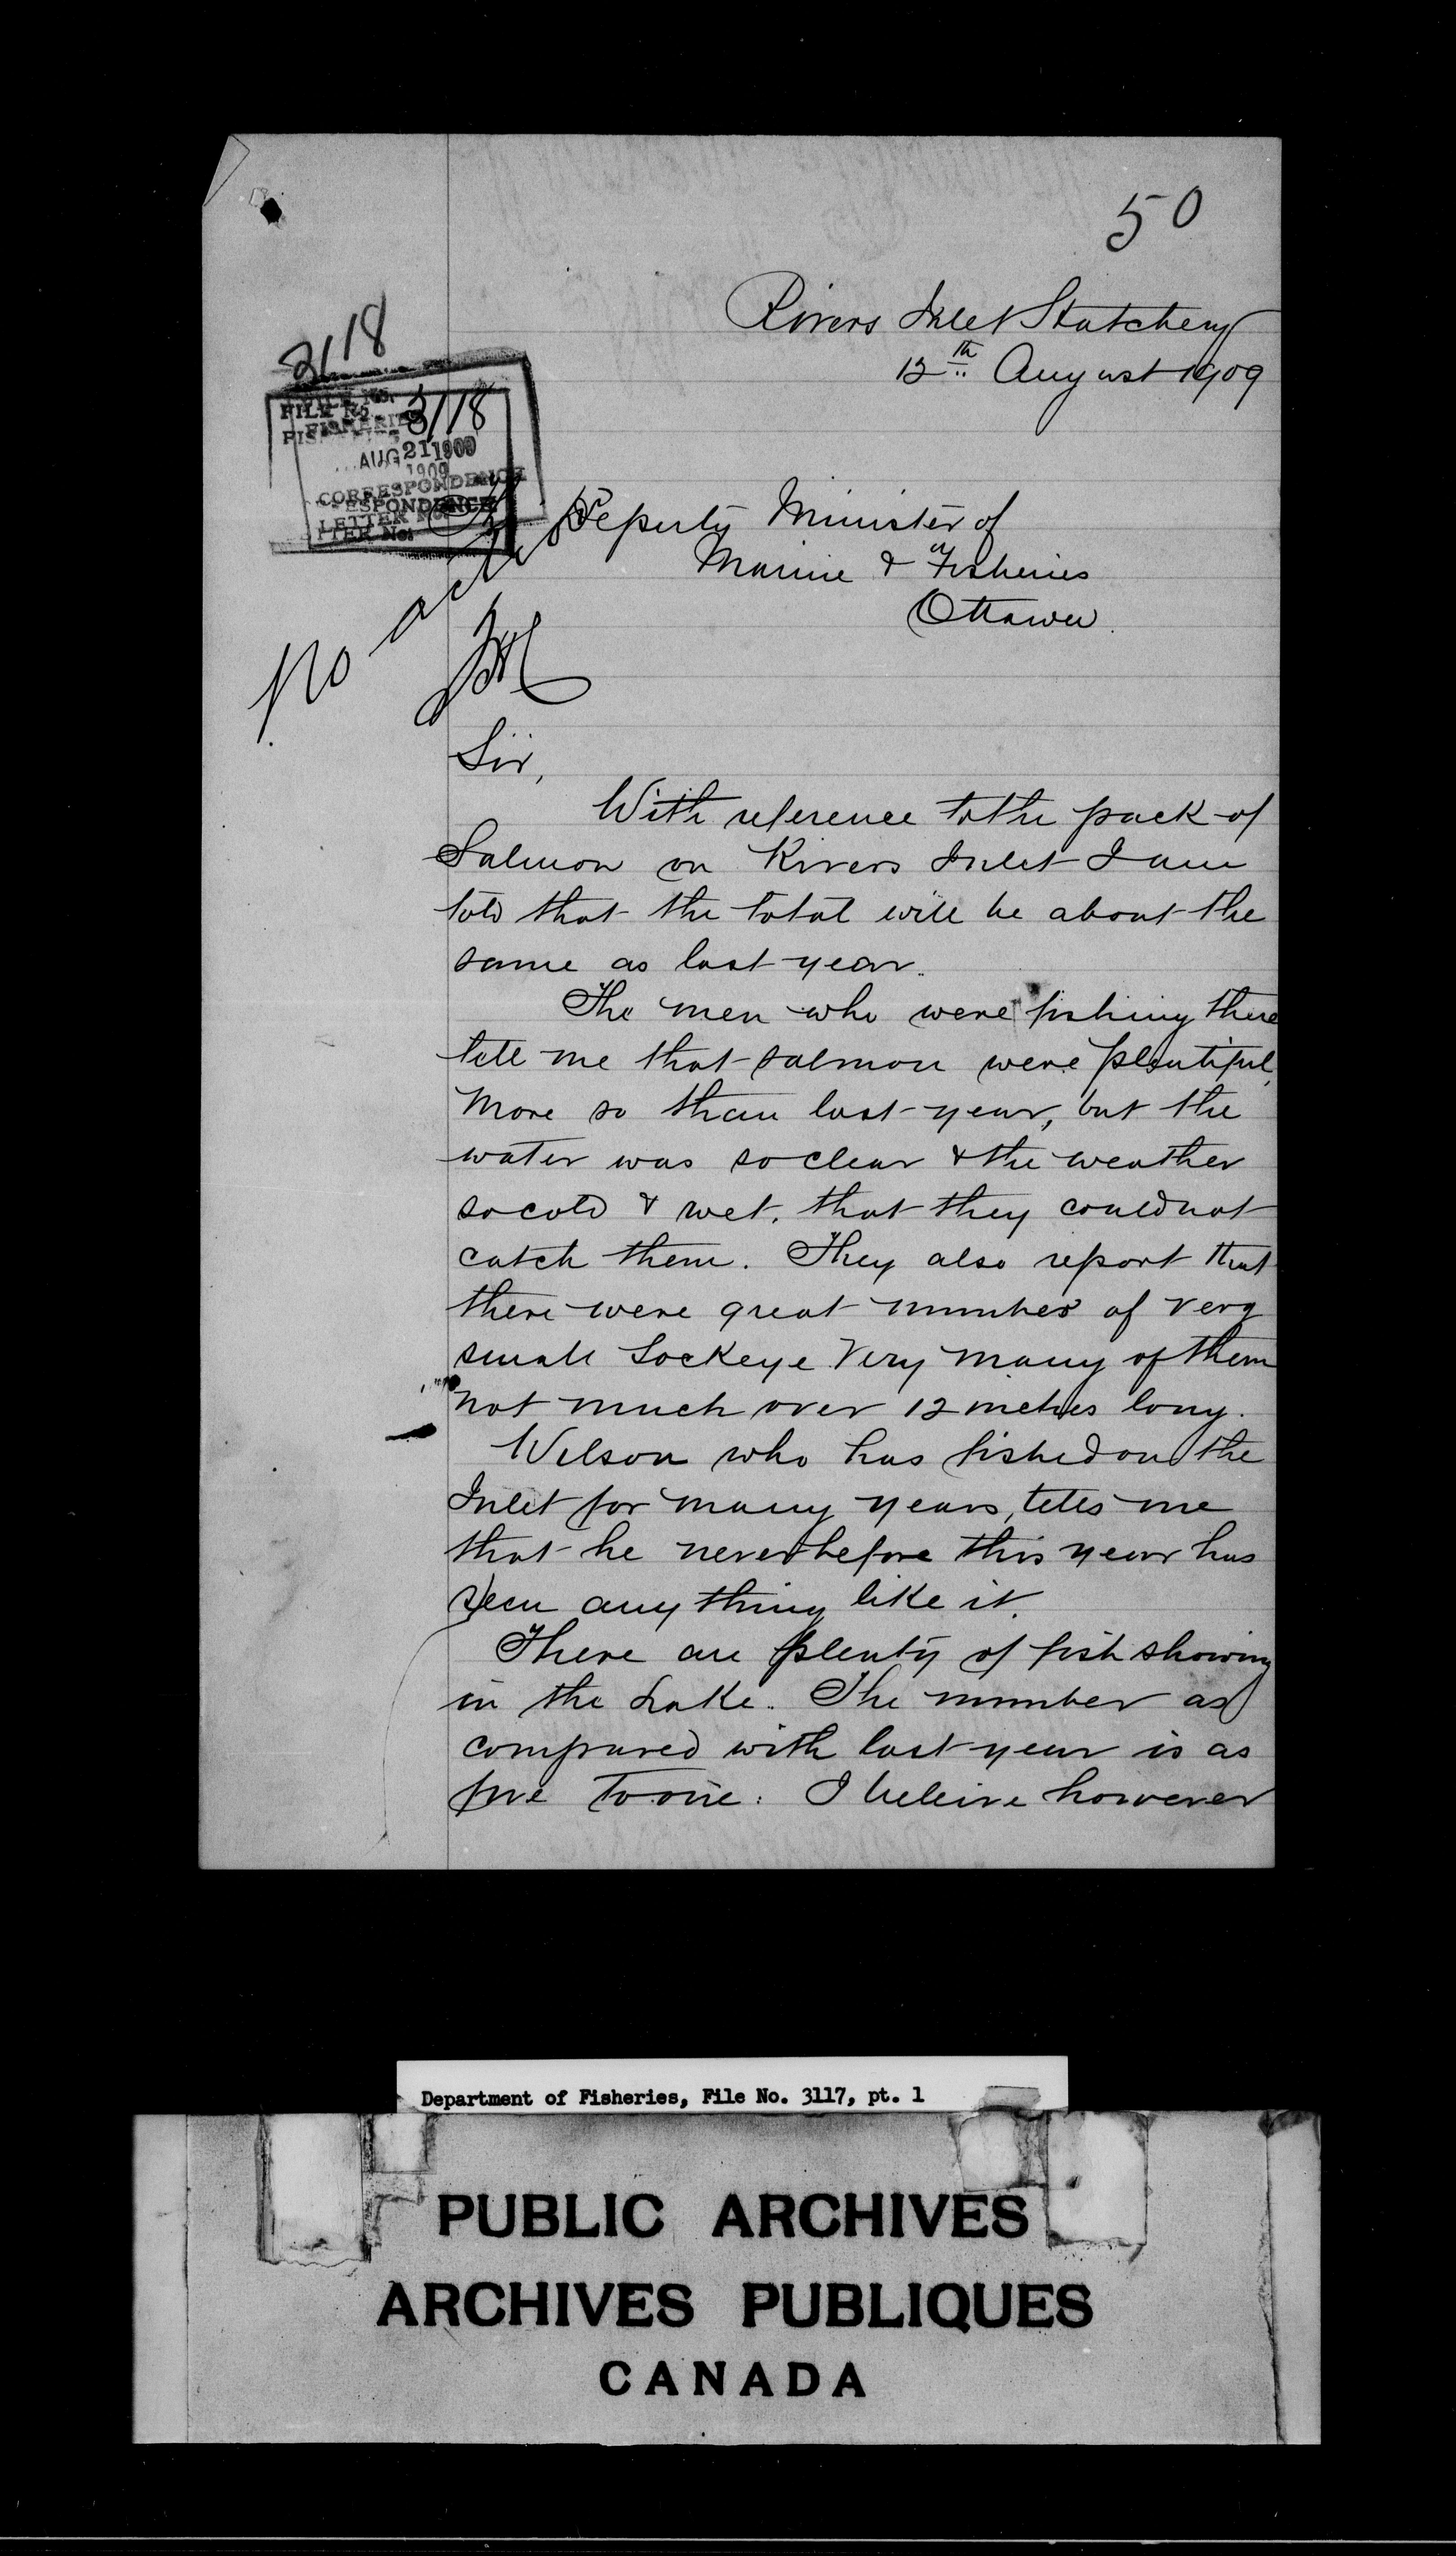 50
Rivers Inlet Hatchery
12th August 1909
3118
FILE No. 3118
FISHERIES
AUG 21 1909
1909
CORRESPONDENCE
RESPONDENCE
LETTER No.
TTER No.
Deputy Minister of
Marine & Fisheries
Ottawa.
No action
Sir,
With reference to the pack of
Salmon on Rivers Inlet I am
told that the total will be about the
same as last year.
The men who were fishing there
tell me that salmon were plentiful,
more so than last year, but the
water was so clear & the weather
so cold & wet, that they could not
catch them. They also report that
there were great number of very
small Sockeye. Very many of them
not much over 12 inches long.
Wilson who has fished on the
Inlet for many years, tells me
that he never before this year has
seen any thing like it.
There are plenty of fish showing
in the Lake. The number as
compared with last year is as
five to one. I beleive however
Department of Fisheries, File No. 3117, pt. 1
PUBLIC ARCHIVES
ARCHIVES PUBLIQUES
CANADA